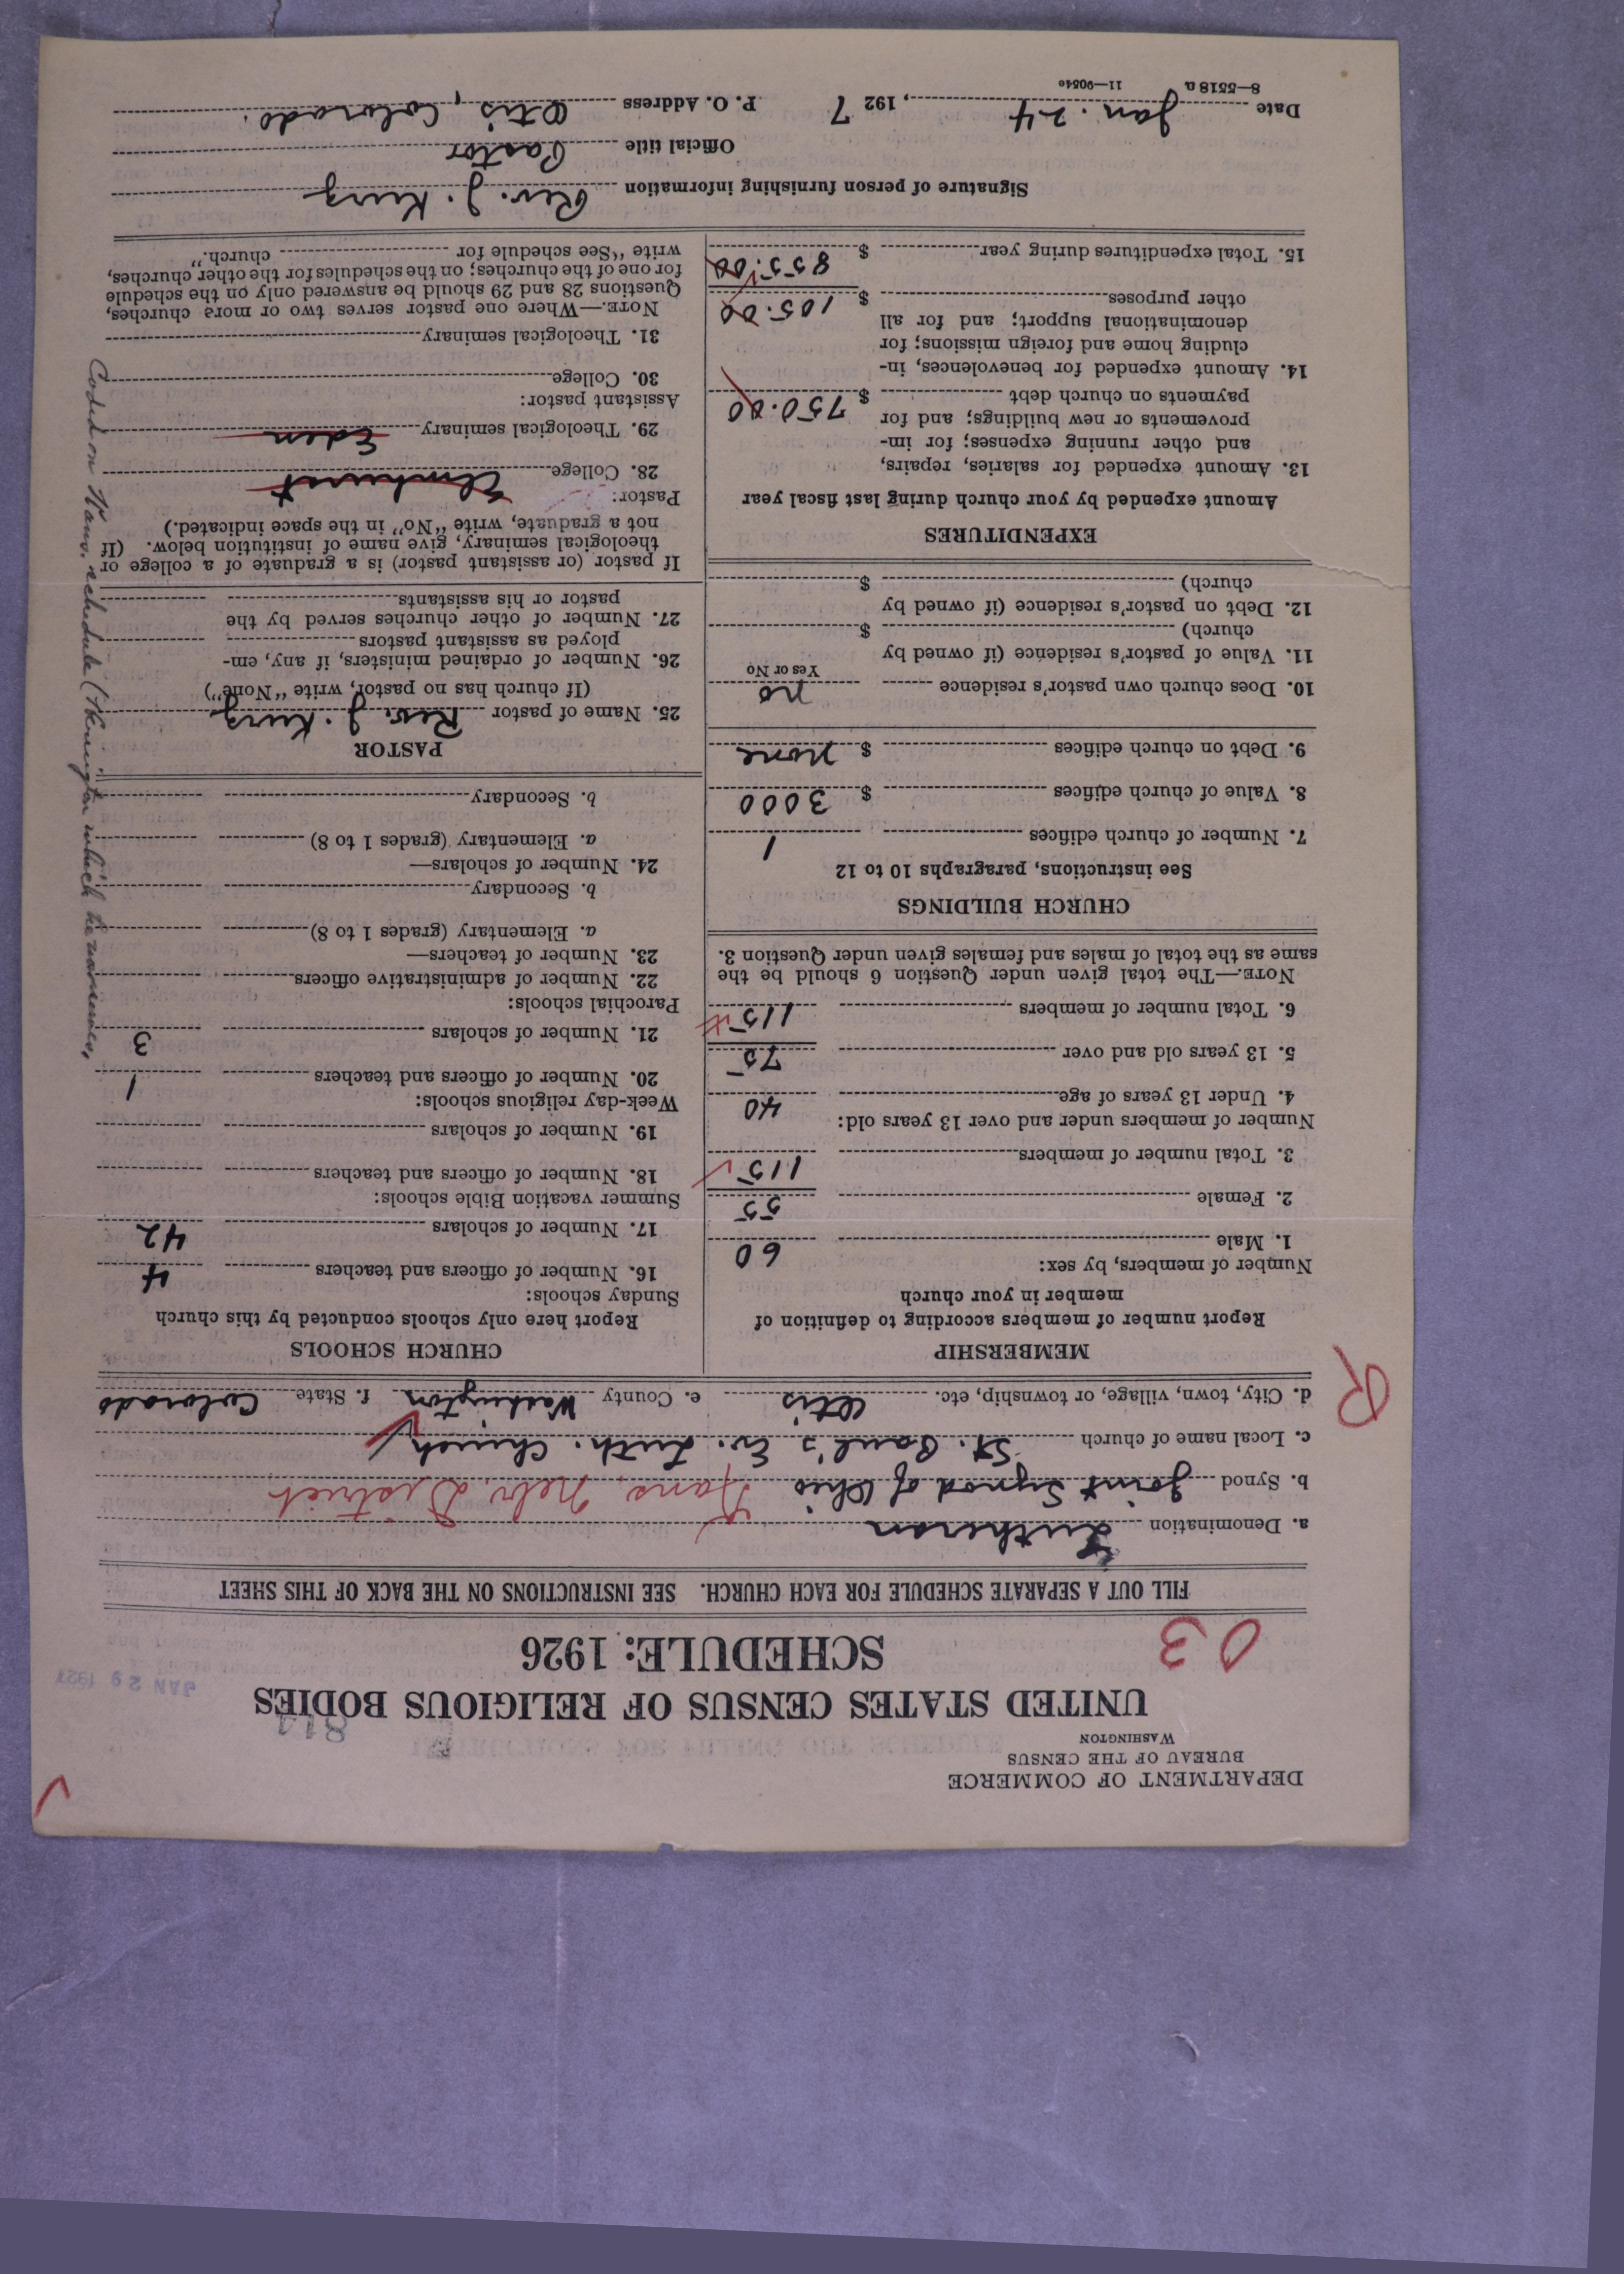 DEPARTMENT OF COMMERCE
BUREAU OF THE CENSUS
WASHINGTON
UNITED STATES CENSUS OF RELIGIOUS BODIES
SCHEDULE: 1926
JAN 29 1927
03
FILL OUT A SEPARATE SCHEDULE FOR EACH CHURCH. SEE INSTRUCTIONS ON THE BACK OF THIS SHEET
a. Denomination Lutheran
b. Synod Joint Synod of Ohio Kans. Nebr. District
c. Local name of church St. Paul's Ev. Luth. Church
d. City, town, village, or township, etc. Otis e. County Washington f. State Colorado
R
MEMBERSHIP
Report number of members according to definition of
member in your church
Number of members, by sex:
1. Male 60
2. Female 55
3. Total number of members 115
Number of members under and over 13 years old:
4. Under 13 years of age 40
5. 13 years old and over 75
6. Total number of members 115
NOTE.—The total given under Question 6 should be the
same as the total of males and females given under Question 3.
CHURCH BUILDINGS
See instructions, paragraphs 10 to 12
7. Number of church edifices 1
8. Value of church edifices $ 3000
9. Debt on church edifices $ none
10. Does church own pastor's residence no
Yes or No
11. Value of pastor's residence (if owned by
church) $
12. Debt on pastor's residence (if owned by
church) $
EXPENDITURES
Amount expended by your church during last fiscal year
13. Amount expended for salaries, repairs,
and other running expenses; for im-
provements or new buildings; and for
payments on church debt $ 750.00
14. Amount expended for benevolences, in-
cluding home and foreign missions; for
denominational support; and for all
other purposes $ 105.00
15. Total expenditures during year $ 855.00
CHURCH SCHOOLS
Report here only schools conducted by this church
Sunday schools:
16. Number of officers and teachers 4
17. Number of scholars 42
Summer vacation Bible schools:
18. Number of officers and teachers
19. Number of scholars
Week-day religious schools:
20. Number of officers and teachers 1
21. Number of scholars 3
Parochial schools:
22. Number of administrative officers
23. Number of teachers—
a. Elementary (grades 1 to 8)
b. Secondary
24. Number of scholars—
a. Elementary (grades 1 to 8)
b. Secondary
PASTOR
25. Name of pastor Rev. J. Kurz
(If church has no pastor, write "None")
26. Number of ordained ministers, if any, em-
ployed as assistant pastors
27. Number of other churches served by the
pastor or his assistants
If pastor (or assistant pastor) is a graduate of a college or
theological seminary, give name of institution below. (If
not a graduate, write "No" in the space indicated.)
Pastor:
28. College Elmhurst
29. Theological seminary Eden
Assistant pastor:
30. College
31. Theological seminary
NOTE.—Where one pastor serves two or more churches,
Questions 28 and 29 should be answered only on the schedule
for one of the churches; on the schedules for the other churches,
write "See schedule for church."
Coded on Kans. schedule ( which he
Signature of person furnishing information Rev. J. Kurz
Official title Pastor
Date Jan. 24, 1927 P. O. Address Otis, Colorado.
8—5518 a 11—9054